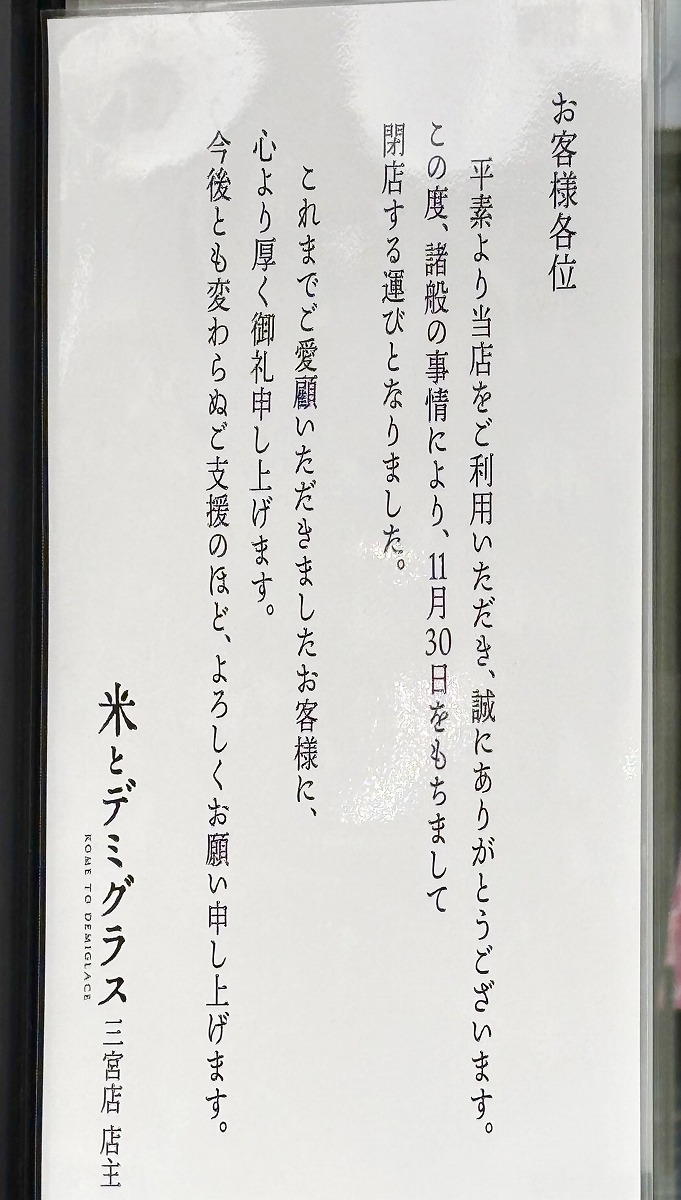 お客様各位
平素より当店をご利用いただき、誠にありがとうございます。
この度、諸般の事情により、11月30日をもちまして
閉店する運びとなりました。
これまでご愛顧いただきましたお客様に、
心より厚く御礼申し上げます。
今後とも変わらぬご支援のほど、よろしくお願い申し上げます。
米とデミグラス 三宮店 店主
KOME TO DEMIGLACE